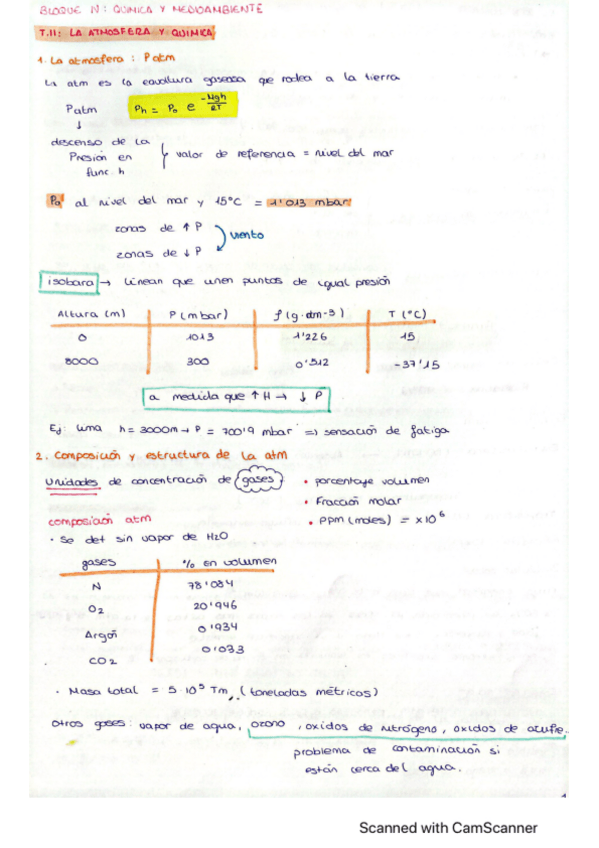 BLOQUE IV: QUIMICA Y MEDIOAMBIENTE
T.11: LA ATMOSFERA Y QUIMICA
1. La atmosfera : Patm
La atm es la envoltura gaseosa que rodea a la tierra
Patm Ph = Po e -Mgh/RT
↓
descenso de la
Presión en
func. h
valor de referencia = nivel del mar
Po al nivel del mar y 15°C = 1'013 mbar
zonas de ↑ P
viento
zonas de ↓ P
isobara → Linean que unen puntos de igual presión
Altura (m) P (mbar) f (g·dm-3) T (°C)
0 1013 1'226 15
8000 300 0'512 -37'15
a medida que ↑ H → ↓ P
Ej: Lima h = 3000m → P = 700'9 mbar => sensación de fatiga
2. Composición y estructura de la atm
Unidades de concentración de gases • porcentaje volumen
• Fracción molar
• ppm (moles) = x10^6
composición atm
• Se det sin vapor de H2O
gases % en volumen
N 78'084
O2 20'946
Argon 0'934
CO2 0'033
• Masa total = 5·10^5 Tm, (toneladas métricos)
Otros gases: vapor de agua, ozono, oxidos de nitrógeno, oxidos de azufre..
problema de contaminación si
están cerca del agua.
1
Scanned with CamScanner